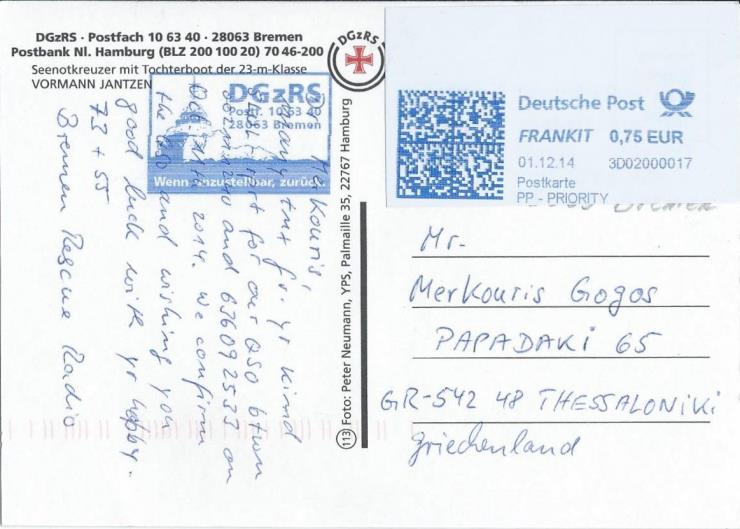 DGzRS · Postfach 10 63 40 · 28063 Bremen
Postbank Nl. Hamburg (BLZ 200 100 20) 70 46-200
Seenotkreuzer mit Tochterboot der 23-m-Klasse
VORMANN JANTZEN
DGzRS
DGzRS
Postf. 10 63 40
28063 Bremen
Wenn unzustellbar, zurück
Merkouris,
many tnx fr. yr kind
report for our QSO btwn
and 636092533 on
2014. We confirm
the QSO and wishing you
good luck with yr hobby.
73 + 55
Bremen Rescue Radio
(113) Foto: Peter Neumann, YPS, Palmaille 35, 22767 Hamburg
Deutsche Post
FRANKIT 0,75 EUR
01.12.14 3D02000017
Postkarte
PP - PRIORITY
Mr.
Merkouris Gogos
PAPADAKI 65
GR-542 48 THESSALONIKI
Griechenland